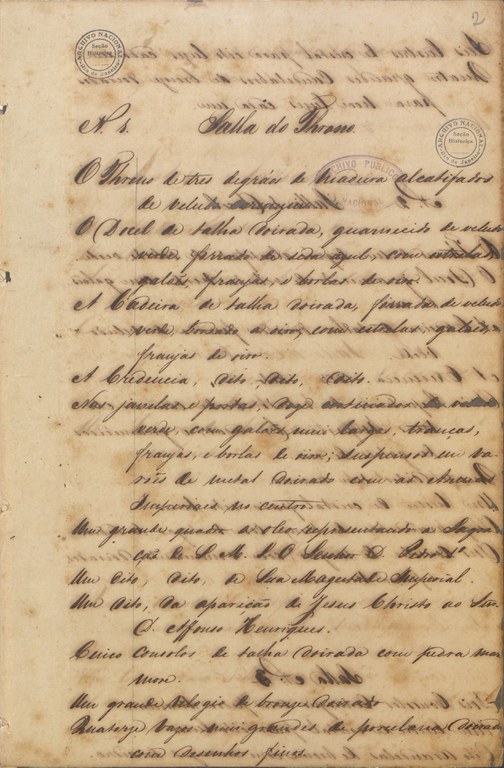 2
ARCHIVO NACIONAL
Seção Historica
Rio de Janeiro
ARCHIVO NACIONAL
Seção Historica
Rio de Janeiro
N. 1. Salla do Throno.
ARCHIVO PUBLICO
NACIONAL
O Throno de tres degráos de madeira alcatifados
de veludo
O Docel de talha doirada, guarnecido de veludo
verde, forrado de seda azul, com estrelas,
galões, franjas, e borlas de oiro.
A Cadeira de talha doirada, forrada de veludo
verde bordado a oiro, com estrelas, galões,
franjas de oiro.
A Credencia, dito, dito, dito.
Nas janelas e portas, doze cortinados de veludo
verde, com galões mui largos, tranças,
franjas, e borlas de oiro; suspensos em va-
rões de metal doirado com as Armas
Imperiaes no centro
Um grande quadro a oleo representando a Sagra-
ção de S. M. I. O Senhor D. Pedro 1º
Um dito, dito, de Sua Magestade Imperial.
Um dito, da aparição de Jesus Christo ao Snr.
D. Affonso Henriques.
Cinco consolos de talha doirada com pedra mar-
more.
Um grande relogio de bronze doirado
Quatorze vazos mui grandes de porcelana doirada
com desenhos finos.